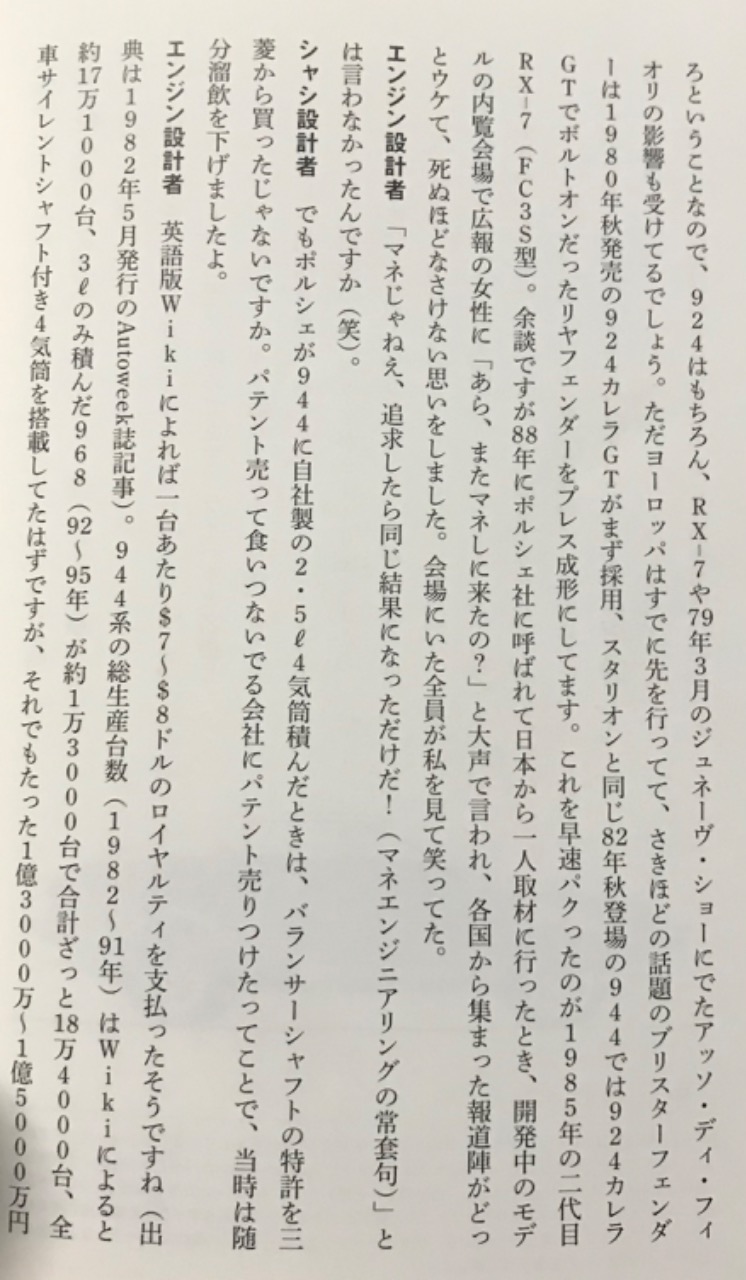 ろということなので、924はもちろん、RX-7や79年3月のジュネーヴ・ショーにでたアッソ・ディ・フィ
オリの影響も受けてるでしょう。ただヨーロッパはすでに先を行ってて、さきほどの話題のブリスターフェンダ
ーは1980年秋発売の924カレラGTがまず採用、スタリオンと同じ82年秋登場の944では924カレラ
GTでボルトオンだったリヤフェンダーをプレス成形にしてます。これを早速パクったのが1985年の二代目
RX-7(FC3S型)。余談ですが88年にポルシェ社に呼ばれて日本から一人取材に行ったとき、開発中のモデ
ルの内覧会場で広報の女性に「あら、またマネしに来たの?」と大声で言われ、各国から集まった報道陣がどっ
とウケて、死ぬほどなさけない思いをしました。会場にいた全員が私を見て笑ってた。
エンジン設計者 「マネじゃねえ、追求したら同じ結果になっただけだ!(マネエンジニアリングの常套句)」と
は言わなかったんですか(笑)。
シャシ設計者 でもポルシェが944に自社製の2・5ℓ4気筒積んだときは、バランサーシャフトの特許を三
菱から買ったじゃないですか。パテント売って食いつないでる会社にパテント売りつけたってことで、当時は随
分溜飲を下げましたよ。
エンジン設計者 英語版Wikiによれば一台あたり$7〜$8ドルのロイヤルティを支払ったそうですね(出
典は1982年5月発行のAutoweek誌記事)。944系の総生産台数(1982〜91年)はWikiによると
約17万1000台、3ℓのみ積んだ968(92〜95年)が約1万3000台で合計ざっと18万4000台、全
車サイレントシャフト付き4気筒を搭載してたはずですが、それでもたった1億3000万〜1億5000万円